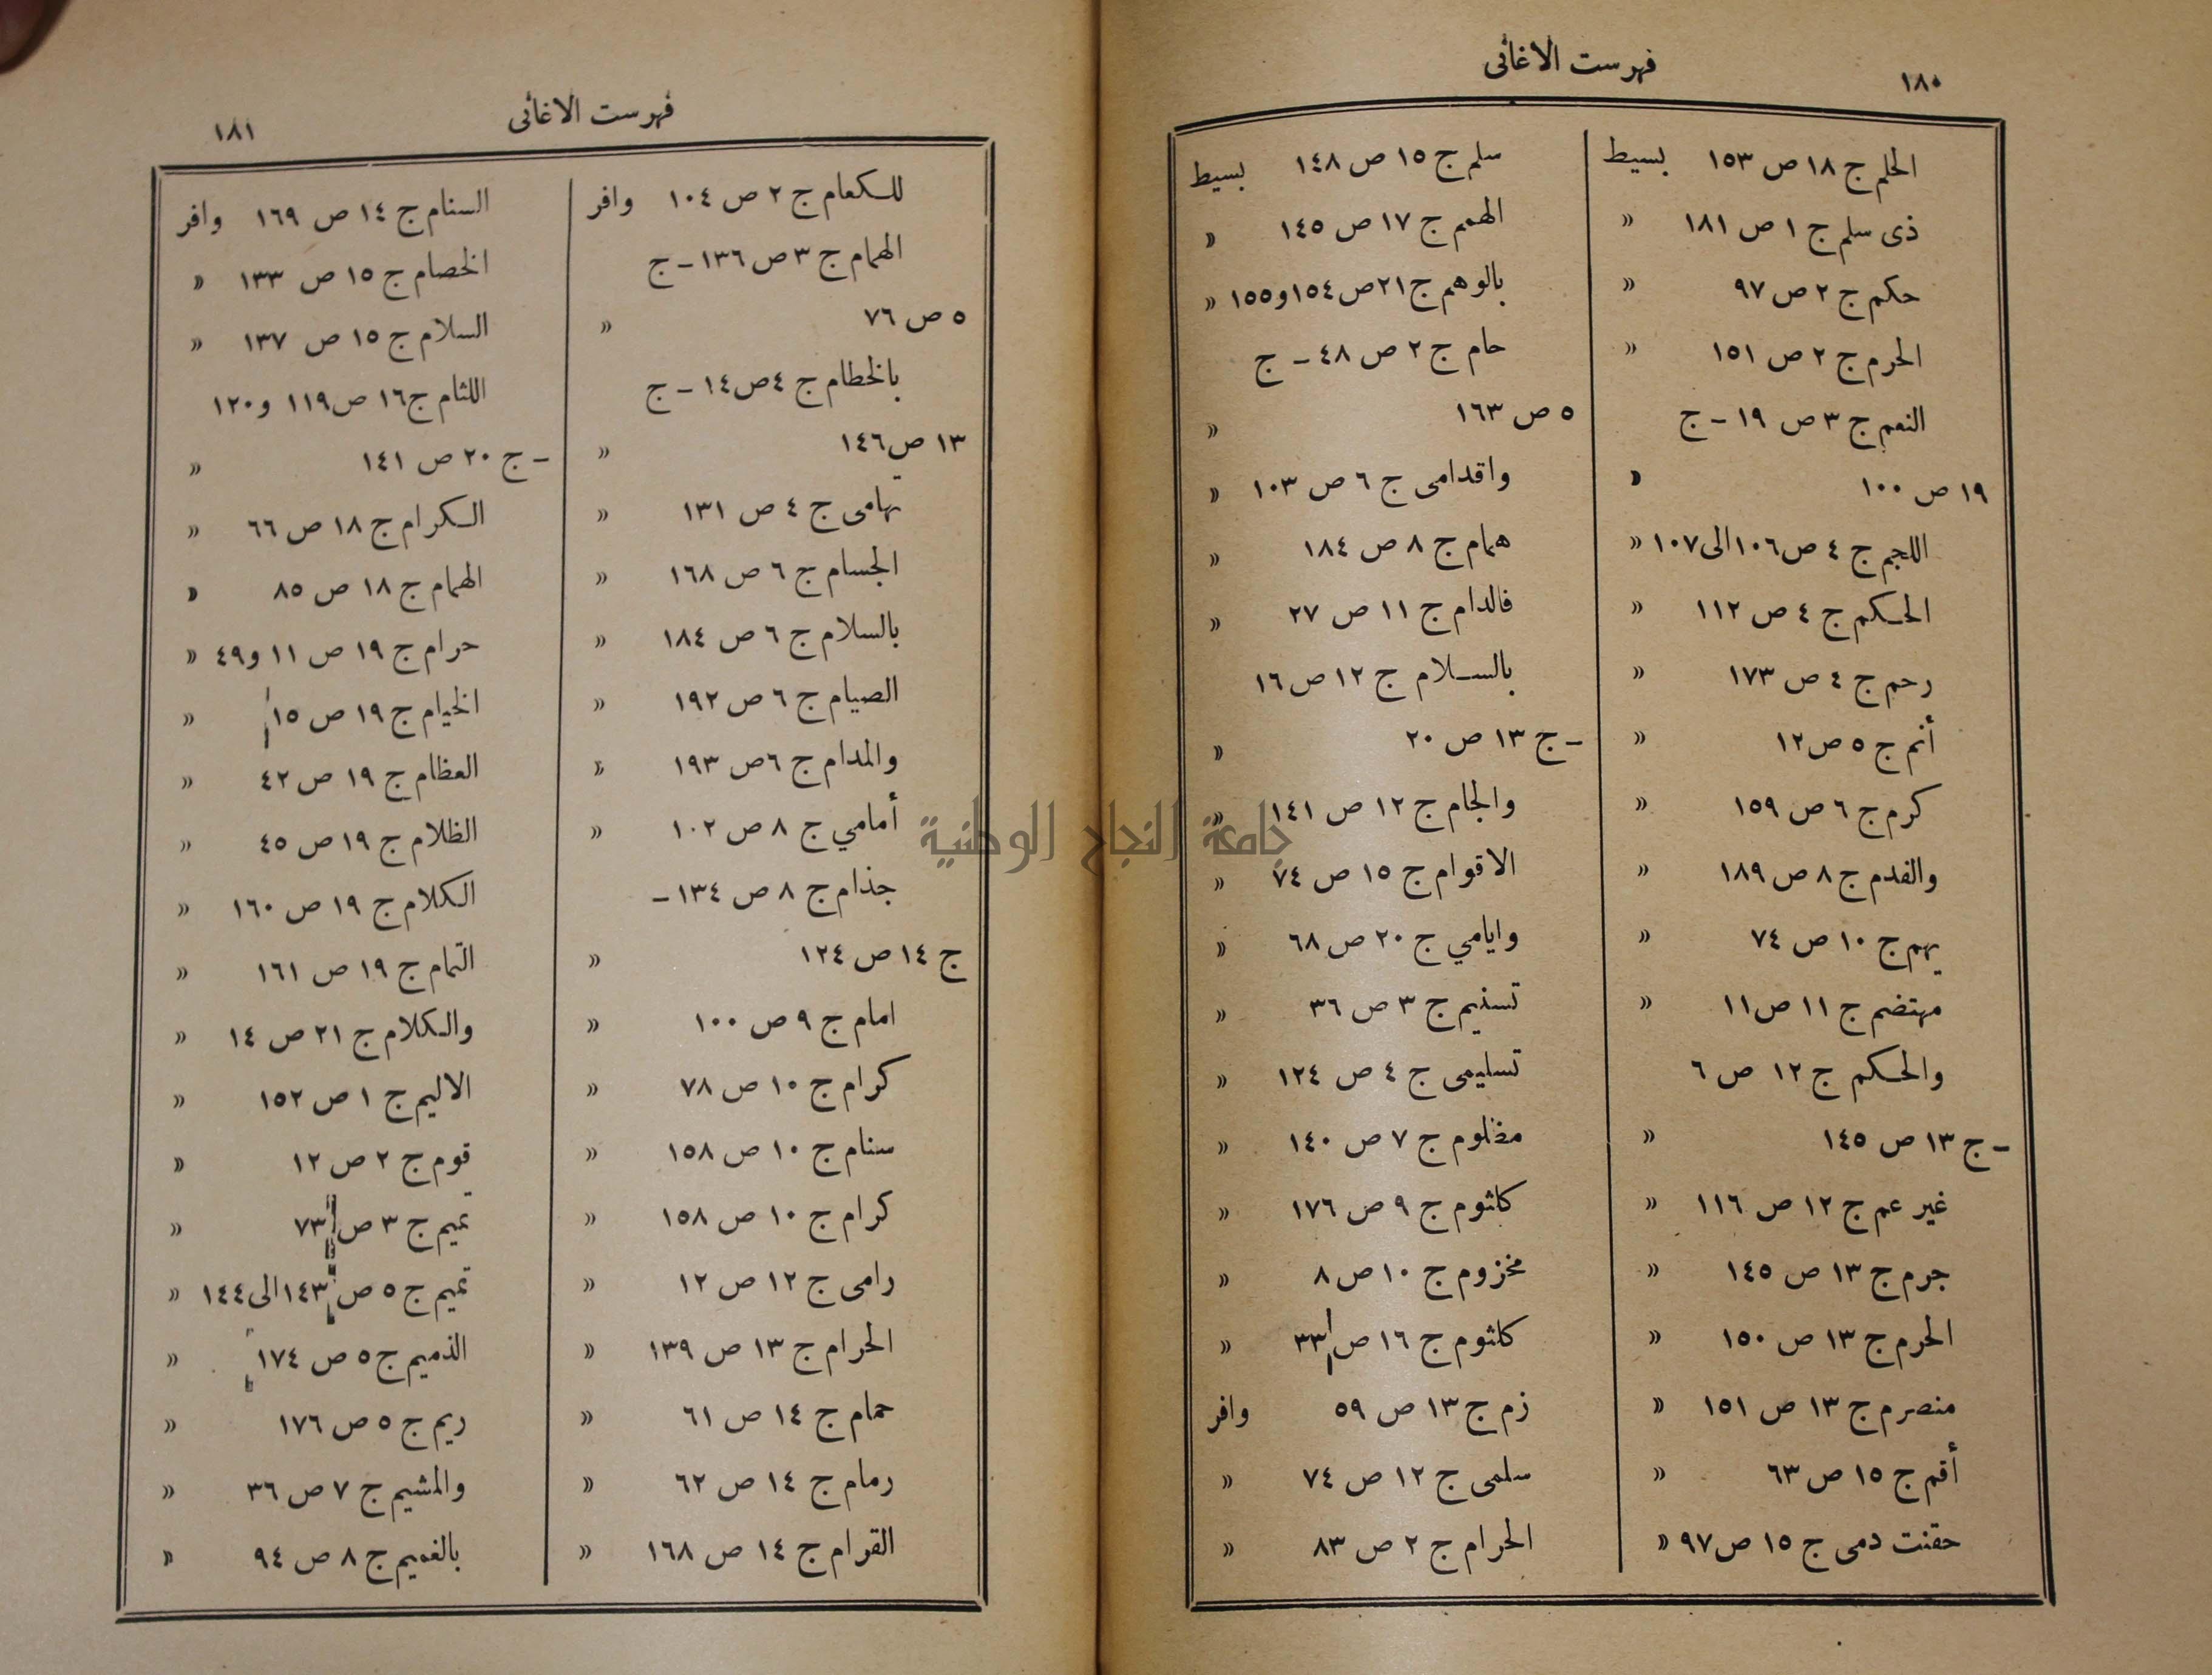 ١٨٠
فهرست الاغانى
الحلم ج ١٨ ص ١٥٣ بسيط
ذى سلم ج ١ ص ١٨١ «
حكم ج ٢ ص ٩٧ «
الحرم ج ٢ ص ١٥١ «
النعم ج ٣ ص ١٩ - ج
١٩ ص ١٠٠ «
اللجم ج ٤ ص ١٠٦ الى ١٠٧ «
الحكم ج ٤ ص ١١٢ «
رحم ج ٤ ص ١٧٣ «
أنم ج ٥ ص ١٢ «
كرم ج ٦ ص ١٥٩ «
والقدم ج ٨ ص ١٨٩ «
بهم ج ١٠ ص ٧٤ «
مهتضم ج ١١ ص ١١ «
والحكم ج ١٢ ص ٦
- ج ١٣ ص ١٤٥ «
غير عم ج ١٢ ص ١١٦ «
جرم ج ١٣ ص ١٤٥ «
الحرم ج ١٣ ص ١٥٠ «
منصرم ج ١٣ ص ١٥١ «
أقم ج ١٥ ص ٦٣ «
حقنت دمى ج ١٥ ص ٩٧ «
سلم ج ١٥ ص ١٤٨ بسيط
الهمم ج ١٧ ص ١٤٥ «
بالوهم ج ٢١ ص ١٥٤ و ١٥٥ «
حام ج ٢ ص ٤٨ - ج
٥ ص ١٦٣ «
واقدامى ج ٦ ص ١٠٣ «
همام ج ٨ ص ١٨٤ «
فالدام ج ١١ ص ٢٧ «
بالسلام ج ١٢ ص ١٦
- ج ١٣ ص ٢٠ «
والجام ج ١٢ ص ١٤١ «
الاقوام ج ١٥ ص ٧٤ «
وايامي ج ٢٠ ص ٦٨ «
تسنيم ج ٣ ص ٣٦ «
تسليمى ج ٤ ص ١٢٤ «
مظلوم ج ٧ ص ١٤٠ «
كلثوم ج ٩ ص ١٧٦ «
مخزوم ج ١٠ ص ٨ «
كلثوم ج ١٦ ص ٣٣ «
زم ج ١٣ ص ٥٩ وافر
سلمى ج ١٢ ص ٧٤ «
الحرام ج ٢ ص ٨٣ «
فهرست الاغانى
١٨١
للكعام ج ٢ ص ١٠٤ وافر
الهمام ج ٣ ص ١٣٦ - ج
٥ ص ٧٦ «
بالخطام ج ٤ ص ١٤ - ج
١٣ ص ١٤٦ «
تهامى ج ٤ ص ١٣١ «
الجسام ج ٦ ص ١٦٨ «
بالسلام ج ٦ ص ١٨٤ «
الصيام ج ٦ ص ١٩٢ «
والمدام ج ٦ ص ١٩٣ «
أمامي ج ٨ ص ١٠٢ «
جذام ج ٨ ص ١٣٤ -
ج ١٤ ص ١٢٤ «
امام ج ٩ ص ١٠٠ «
كرام ج ١٠ ص ٧٨ «
سنام ج ١٠ ص ١٥٨ «
كرام ج ١٠ ص ١٥٨ «
رامى ج ١٢ ص ١٢ «
الحرام ج ١٣ ص ١٣٩ «
حمام ج ١٤ ص ٦١ «
رمام ج ١٤ ص ٦٢ «
القرام ج ١٤ ص ١٦٨ «
السنام ج ١٤ ص ١٦٩ وافر
الخصام ج ١٥ ص ١٣٣ «
السلام ج ١٥ ص ١٣٧ «
اللثام ج ١٦ ص ١١٩ و ١٢٠
- ج ٢٠ ص ١٤١ «
الكرام ج ١٨ ص ٦٦ «
الهمام ج ١٨ ص ٨٥ «
حرام ج ١٩ ص ١١ و ٤٩ «
الخيام ج ١٩ ص ١٥ «
العظام ج ١٩ ص ٤٢ «
الظلام ج ١٩ ص ٤٥ «
الكلام ج ١٩ ص ١٦٠ «
التمام ج ١٩ ص ١٦١ «
والكلام ج ٢١ ص ١٤ «
الاليم ج ١ ص ١٥٢ «
قوم ج ٢ ص ١٢ «
تميم ج ٣ ص ٧٣ «
تميم ج ٥ ص ١٤٣ الى ١٤٤ «
الذميم ج ٥ ص ١٧٤ «
ريم ج ٥ ص ١٧٦ «
والمشيم ج ٧ ص ٣٦ «
بالغميم ج ٨ ص ٩٤ «
جامعة النجاح الوطنية